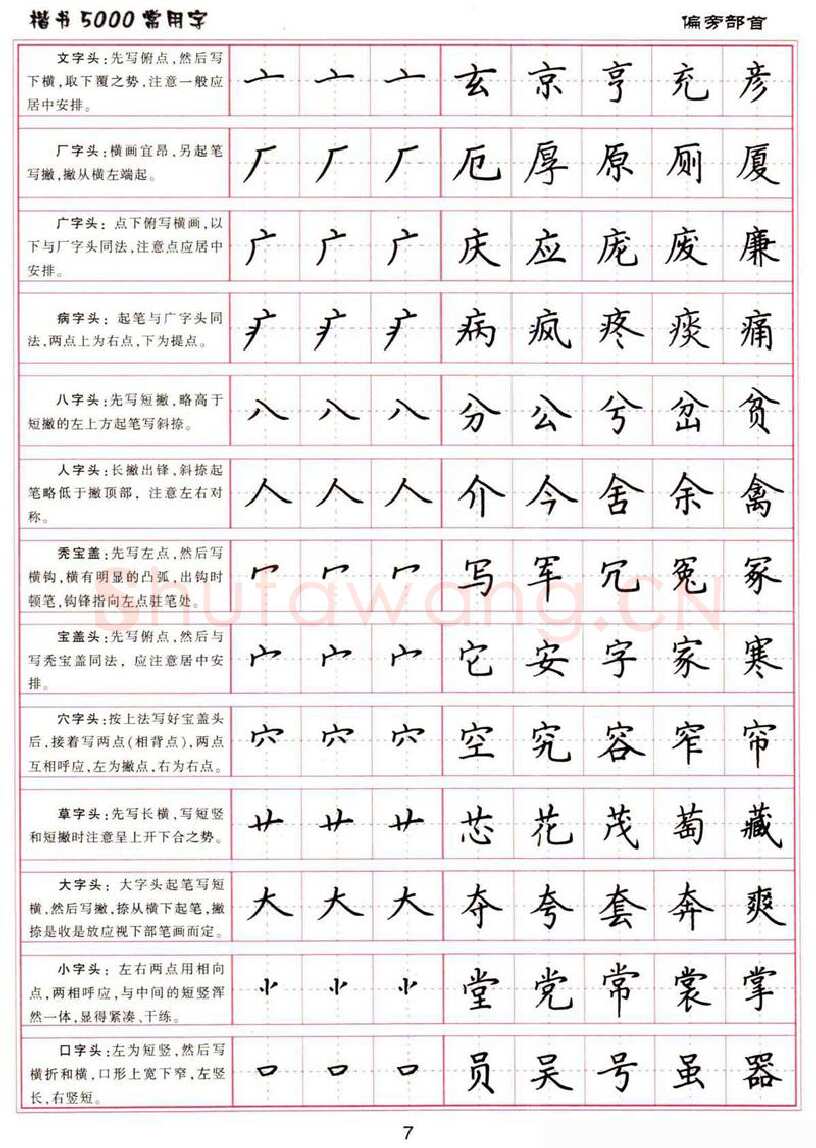 楷书5000常用字
偏旁部首
文字头：先写俯点，然后写
下横，取下覆之势，注意一般应
居中安排。
亠 亠 亠 玄 京 亨 充 彦
厂字头：横画宜昂，另起笔
写撇，撇从横左端起。
厂 厂 厂 厄 厚 原 厕 厦
广字头：点下俯写横画，以
下与厂字头同法，注意点应居中
安排。
广 广 广 庆 应 庞 废 廉
病字头：起笔与广字头同
法，两点上为右点，下为提点。
疒 疒 疒 病 疯 疼 痰 痛
八字头：先写短撇，略高于
短撇的左上方起笔写斜捺。
八 八 八 分 公 兮 岔 贫
人字头：长撇出锋，斜捺起
笔略低于撇顶部，注意左右对
称。
人 人 人 介 今 舍 余 禽
秃宝盖：先写左点，然后写
横钩，横有明显的凸弧，出钩时
顿笔，钩锋指向左点驻笔处。
冖 冖 冖 写 军 冗 冤 冢
宝盖头：先写俯点，然后与
写秃宝盖同法，应注意居中安
排。
宀 宀 宀 它 安 字 家 寒
穴字头：按上法写好宝盖头
后，接着写两点（相背点），两点
互相呼应，左为撇点，右为右点。
穴 穴 穴 空 究 容 窄 帘
草字头：先写长横，写短竖
和短撇时注意呈上开下合之势。
艹 艹 艹 芯 花 茂 萄 藏
大字头：大字头起笔写短
横，然后写撇，捺从横下起笔，撇
捺是收是放应视下部笔画而定。
大 大 大 夺 夸 套 奔 爽
小字头：左右两点用相向
点，两相呼应，与中间的短竖浑
然一体，显得紧凑、干练。
⺌ ⺌ ⺌ 堂 党 常 裳 掌
口字头：左为短竖，然后写
横折和横，口形上宽下窄，左竖
长，右竖短。
口 口 口 员 吴 号 虽 器
Shufawang.CN
7